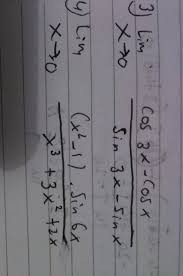 3) Lim x→0 (cos 3x - cos x) / (sin 3x - sin x)
4) Lim x→0 (x² - 1) . sin 6x / (x³ + 3x² + 2x)